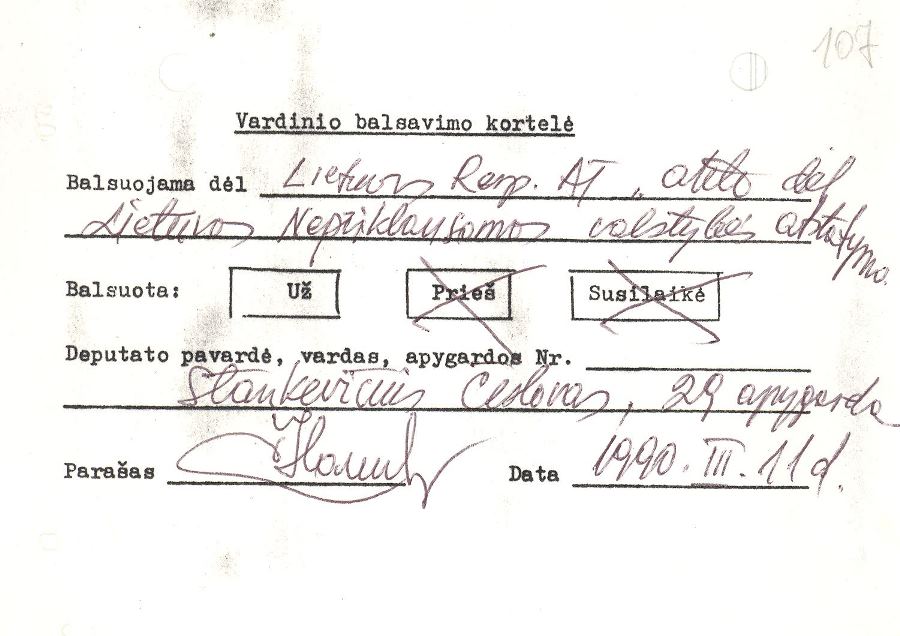 107
Vardinio balsavimo kortelė
Balsuojama dėl Lietuvos Resp. AT akto dėl
Lietuvos Nepriklausomos valstybės atstatymo.
Balsuota: Už Prieš Susilaikė
Deputato pavardė, vardas, apygardos Nr.
Stankevičius Česlovas, 29 apygarda
Parašas Data 1990. III. 11 d.